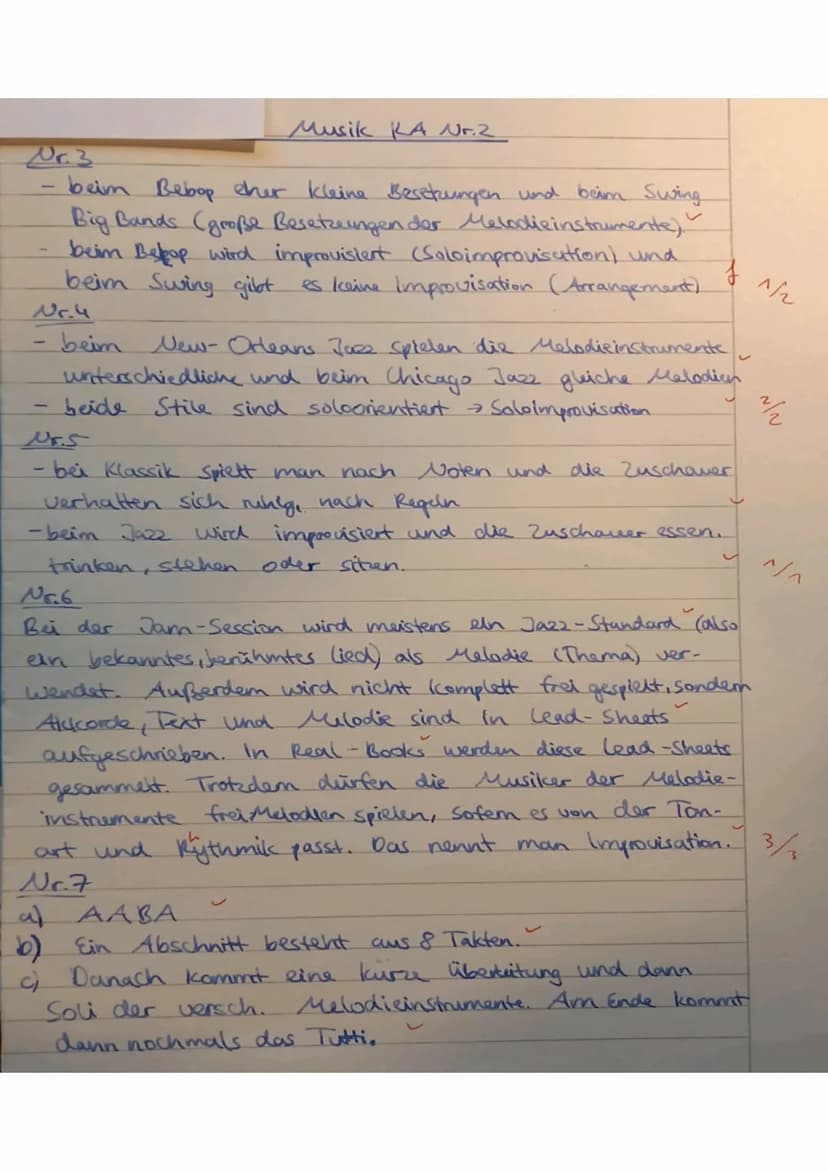 Musik KA Nr.2
Nr.3
- beim Bebop eher kleine Besetzungen und beim Swing
Big Bands (große Besetzungen der Melodieinstrumente) ✓
- beim Bebop wird improvisiert (Soloimprovisation) und
beim Swing gibt es keine Improvisation (Arrangement) f 1/2
Nr.4
- beim New-Orleans Jazz spielen die Melodieinstrumente ✓
unterschiedliche und beim Chicago Jazz gleiche Melodien
- beide Stile sind soloorientiert → Soloimprovisation ✓ 2/2
Nr.5
- bei Klassik spielt man nach Noten und die Zuschauer
verhalten sich ruhig, nach Regeln ✓
- beim Jazz wird improvisiert und die Zuschauer essen,
trinken, stehen oder sitzen. ✓ 1/1
Nr.6
Bei der Jam-Session wird meistens ein Jazz-Standard ✓ (also
ein bekanntes, berühmtes Lied) als Melodie (Thema) ver-
wendet. Außerdem wird nicht komplett frei gespielt, sondern
Akkorde, Text und Melodie sind in Lead-Sheets ✓
aufgeschrieben. In Real-Books ✓ werden diese Lead-Sheets
gesammelt. Trotzdem dürfen die Musiker der Melodie-
instrumente frei Melodien spielen, sofern es von der Ton-
art und Rhythmik passt. Das nennt man Improvisation. ✓ 3/3
Nr.7
a) AABA ✓
b) Ein Abschnitt besteht aus 8 Takten. ✓
c) Danach kommt eine kurze Überleitung und dann
Soli der versch. Melodieinstrumente. Am Ende kommt
dann nochmals das Tutti. ✓